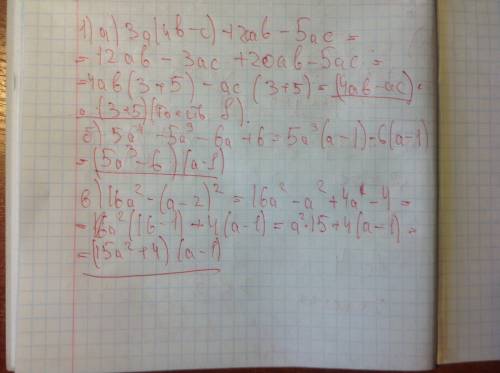 1) а) 3a(4b-c)+2ab-5ac=
=12ab-3ac+20ab-5ac=
=4ab(3+5)-ac(3+5)=(4ab-ac)·
·(3+5) (то есть 8).
б) 5a⁴-5a³-6a+6=5a³(a-1)-6(a-1)
=(5a³-6)(a-1)
в) 16a²-(a-2)²=16a²-a²+4a-4=
=16a²(16-1)+4(a-1)=a²·15+4(a-1)=
=(15a²+4)(a-1)